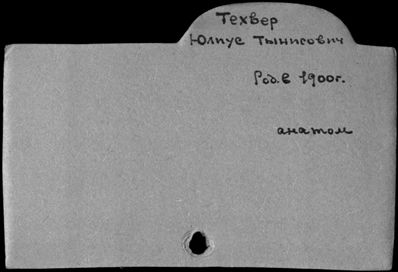 Техвер
Юлиус Тынисович
Род. в 1900г.
анатом